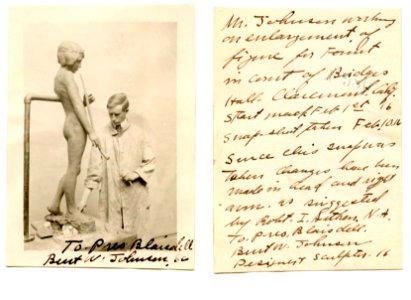 To Pres Blaisdell
Burt W. Johnson, 16
Mr. Johnson working
on enlargement of
figure for Fount
in court of Bridges
Hall. Claremont, Calif.
Start made Feb 1st 16
Snap shot taken Feb. 10, 16
Since this snap was
taken changes have been
made in head and right
arm. as suggested
by Robt. I. Aitken, N.A.
To Pres. Blaisdell.
Burt W. Johnson
Designer Sculptor. 16